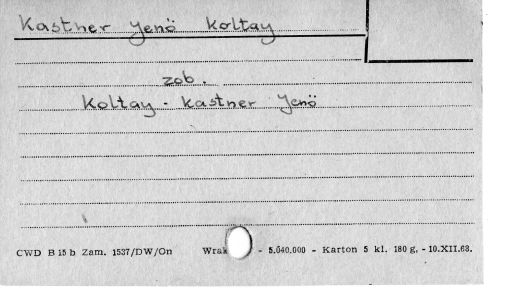 Kastner Jenö Koltay
zob.
Koltay - Kastner Jenö
CWD B 15 b Zam. 1537/DW/On - 5.040.000 - Karton 5 kl. 180 g. - 10.XII.63.